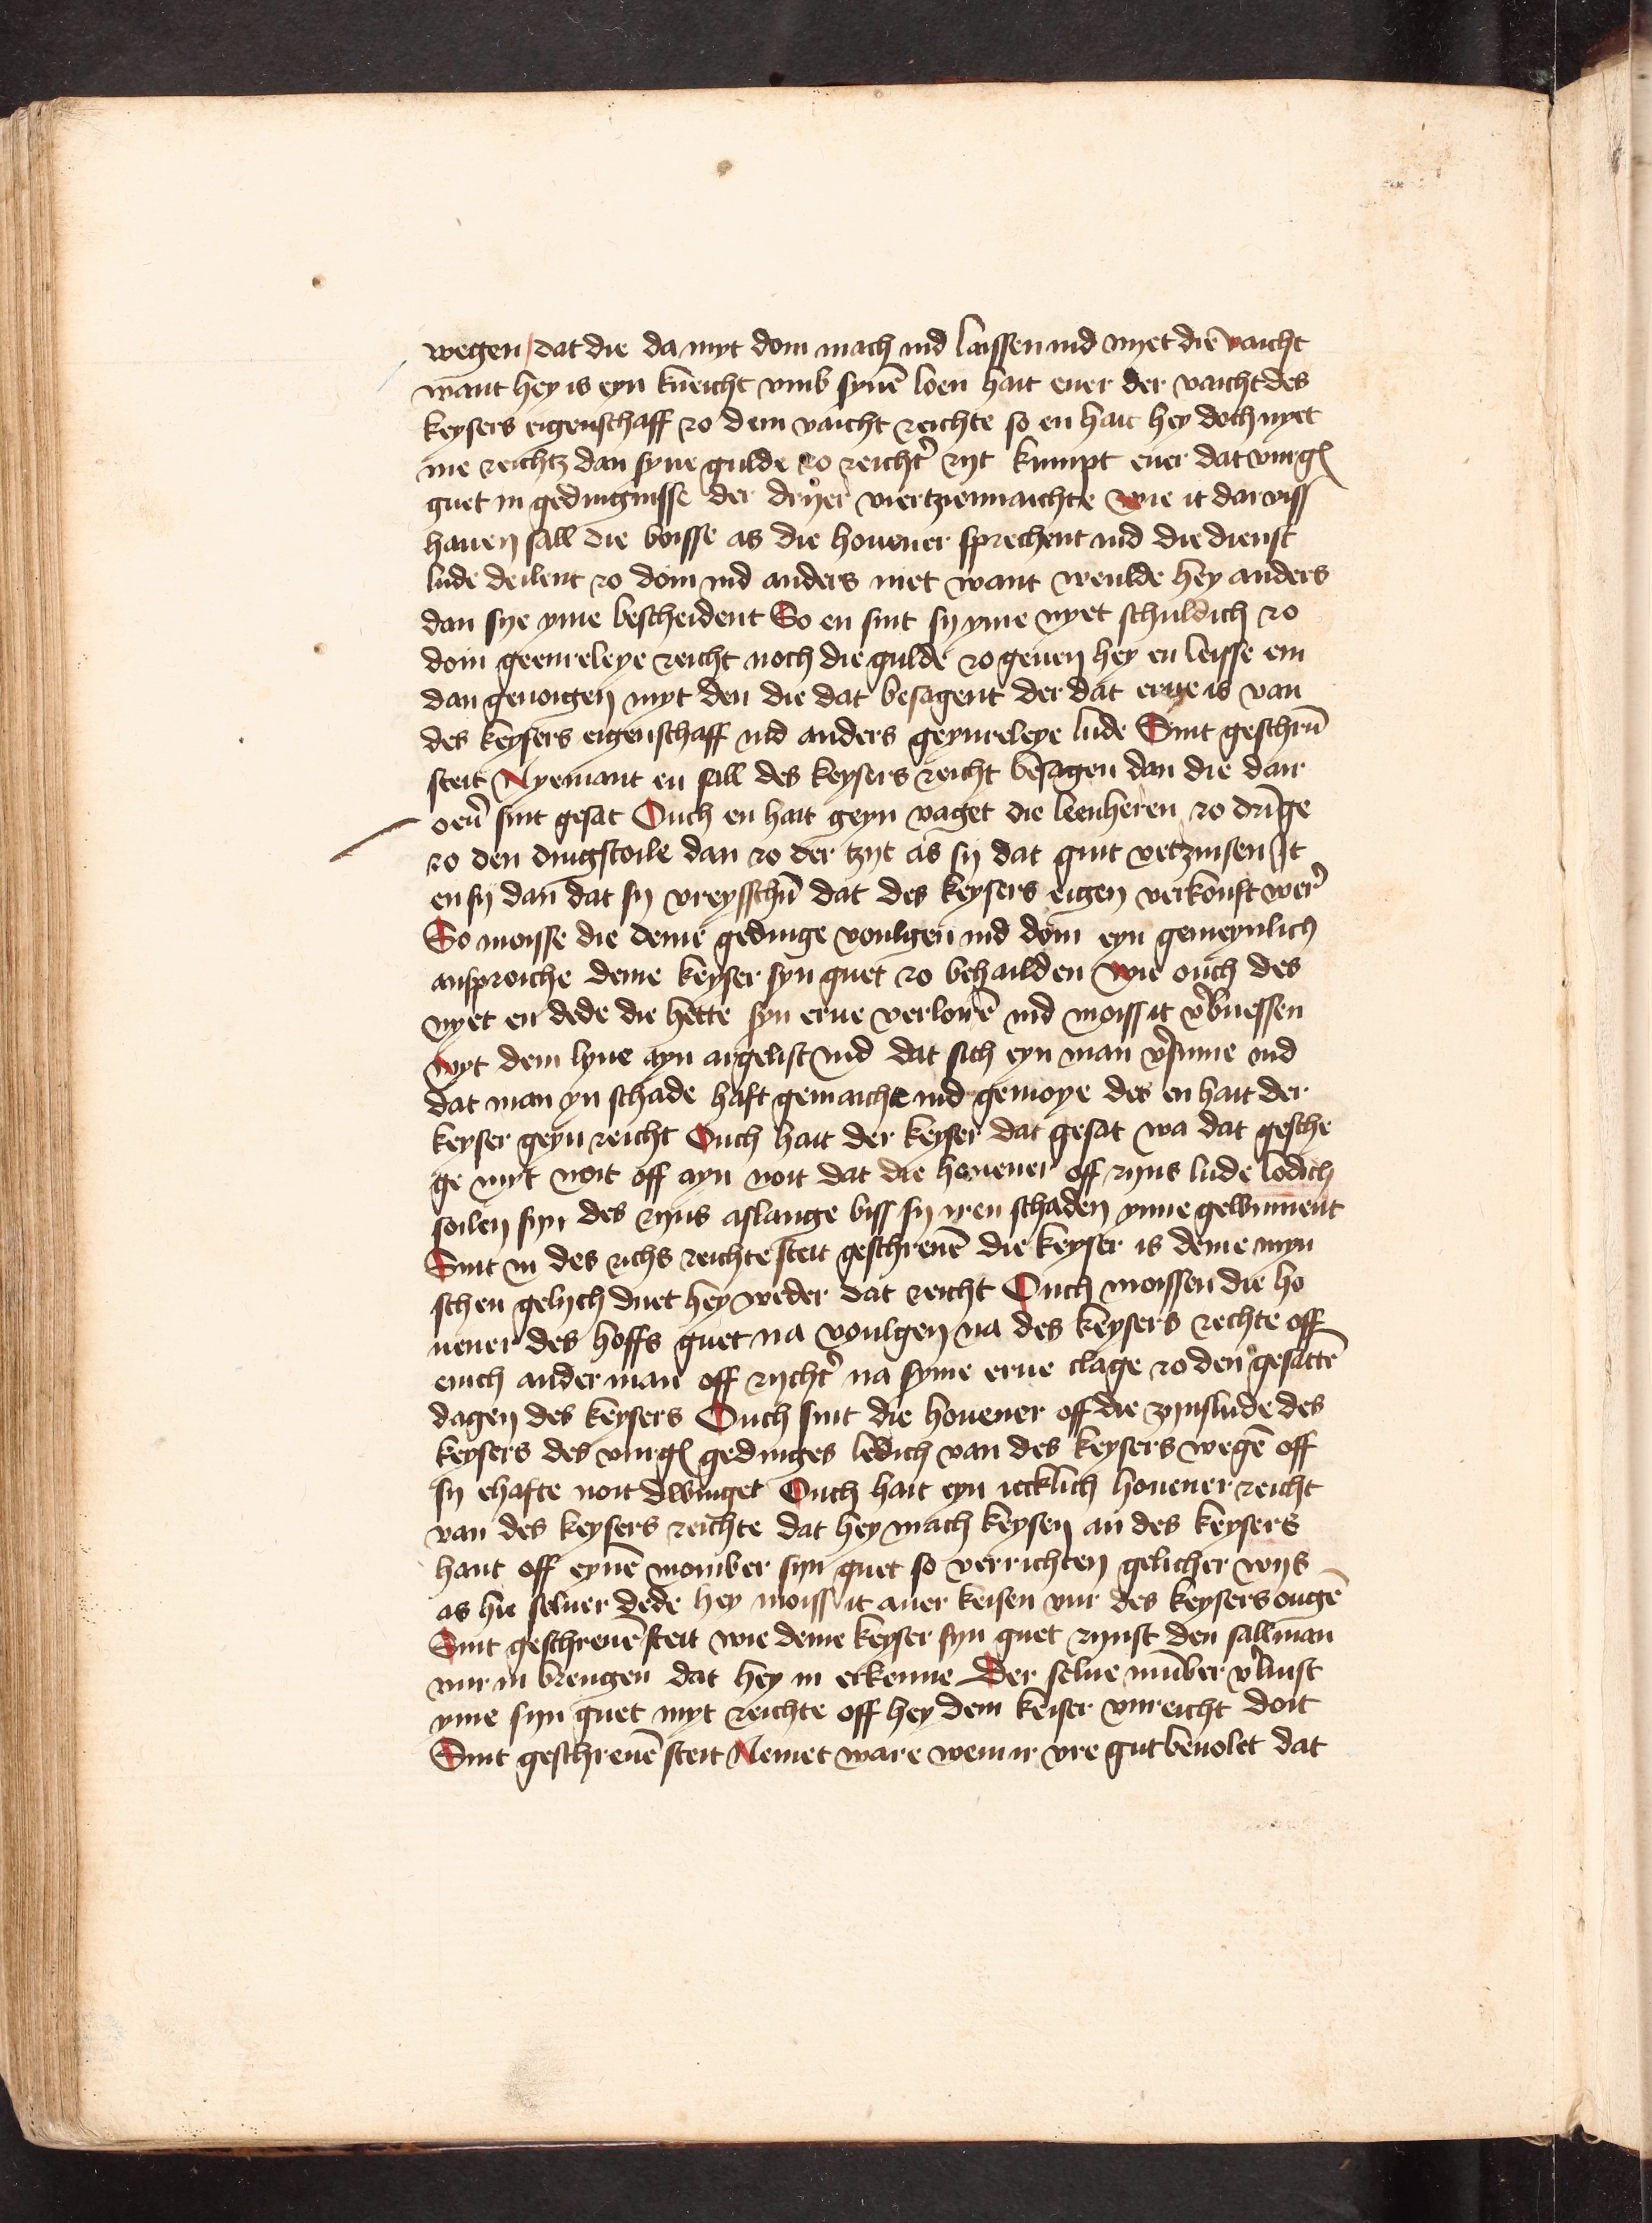 wegen dat die da myt doin mach ind laissen ind nyet diē vaicht
want hey is eyn kneicht vmb synē loen hait euer der vaicht des
keysers eigenschaff zo dem vaicht reichte so en hait hey doch nyet
me reichtz dan syne gulde zo reicht' zijt kumpt euer dat vurg
guet in gedingnisse der drijer viertziennaichte wie it dar viss
hauen sall die boisse as die houener sprechent ind die dienst
lude deilent zo doin ind anders niet want weulde hey anders
dan sye yme bescheident So en sint sij yme nyet schuldich zo
doin geenreleye reicht noch die gulde zo geuen hey en leisse em
dan genoigen myt den die dat besagent der dat erue is van
des keysers eigenschaff ind anders geynreleye lude Sint geschrū
steit Nyemant en sall des keysers reicht besagen dan die dair
oeū' sint gesat Ouch en hait geyn vaget die leenheren zo drīge
zo den dingstoile dan zo der tzyt as sij dat guit vertzinsen It
en sij dan dat sij vreysschū dat des keysers eigen verkouft wer'
So moisse die deme gedinge voulgen ind doin eyn gemeynlich
ansproiche deme keyser syn guet zo behailden wie ouch des
nyet en dede die hette syn erue verlorē ind moiss it v'buessen
myt dem lyue ayn argelist ind dat sich eyn man v'sume ind
dat man yn schade haft gemaicht ind gemoye des en hait der
keyser geyn reicht Ouch hait der keyser dat gesat wa dat gesche
ge myt noit off ayn noit dat die houener off zijns lude lodich
soilen sijn des zijns aslange biss sij iren schaden ynne gewinnent
Sint in des richs reichte steit geschreuē die keyser is deme myn
schen gelych duet hey weder dat reicht Ouch moissen die ho
uener des hoffs guet na voulgen na des keysers rechte off
enich ander man off rycht' na syme erue clage zo den gesattē
dagen des keysers Ouch sint die houener off die zijnslude des
keysers des vurg gedinges ledich van des keysers wegē off
sij ehafte noit dwinget Ouch hait eyn iecklich houener reicht
van des keysers reichte dat hey mach keysen an des keysers
hant off eynē momber sijn guet so verrichten gelicher wijs
as hie seluer dede hey moiss it auer keisen vur des keysers ougē
Sint geschreuē steit wie deme keyser syn guet zijnst den sallman
vur in brengen dat hey in erkenne Der selue mūber v'luist
yme sijn guet myt reichte off hey dem keiser vnreicht doit
Sint geschreuē steit Nemet ware wem ir vre gut beuolet dat